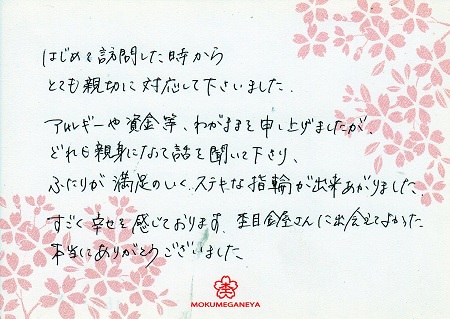 はじめて訪問した時から
とても親切に対応して下さいました.
アレルギーや資金等、わがままを申し上げましたが、
どれも親身になって話を聞いて下り、
ふたりが満足のいく、ステキな指輪が出来あがりました.
すごく幸せを感じております. 杢目金屋さんに出会えてよかった
本当にありがとうございました
MOKUMEGANEYA